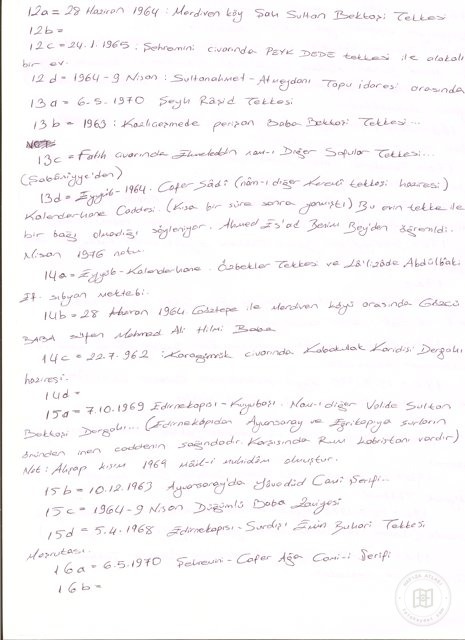 12a = 28 Haziran 1964 : Merdiven köy Şah Sultan Bektaşi Tekkesi
12b =
12c = 24.1.1965 : Şehremini civarında PEYK DEDE tekkesi ile alakalı
bir ev.
12d = 1964-9 Nisan : Sultanahmet - Atmeydanı Tapu idaresi arasında
13a = 6.5.1970 Şeyh Râşid Tekkesi
13b = 1963 : Kazlıçeşmede perişan Baba Bektaşi Tekkesi...
NOT:
13c = Fatih civarında nam-ı Diğer Sofular Tekkesi...
13d = Eyyüb - 1964. Cafer Sâdi (nâm-ı diğer tekkesi haziresi)
Kalenderhane Caddesi. (Kısa bir süre sonra yanmıştı) Bu evin tekke ile
bir bağı olmadığı söyleniyor. Ahmed Es'ad Benim Bey'den öğrenildi.
Nisan 1976 notu.
14a = Eyyüb - Kalenderhane. Özbekler Tekkesi ve Lâ'lizâde Abdülbâki
Ef. sıbyan mektebi.
14b = 28 Haziran 1964 Göztepe ile Merdiven köyü arasında Gözcü
BABA Mehmed Ali Hilmi Baba
14c = 22.7.962 : Karagümrük civarında Kabakulak Dergahı
haziresi.
14d =
15a = 7.10.1969 Edirnekapısı - Kuyubaşı. Nam-ı diğer Valide Sultan
Bektaşi Dergahı... (Edirnekapıdan Ayvansaray ve Eğrikapıya surların
önünden inen caddenin sağındadır. Karşısında Rum kabristanı vardır)
Not : Ahşap kısım 1969 mâil-i inhidâm olmuştur.
15b = 10.12.1963 Ayvansaray'da Yâvedûd Cami Şerifi...
15c = 1964-9 Nisan Düğümlü Baba Zaviyesi
15d = 5.4.1968 Edirnekapısı - Surdışı Emin Buhari Tekkesi
Meşrutası.
16a = 6.5.1970 Şehremini - Cafer Ağa Cami-i Şerifi
16b =